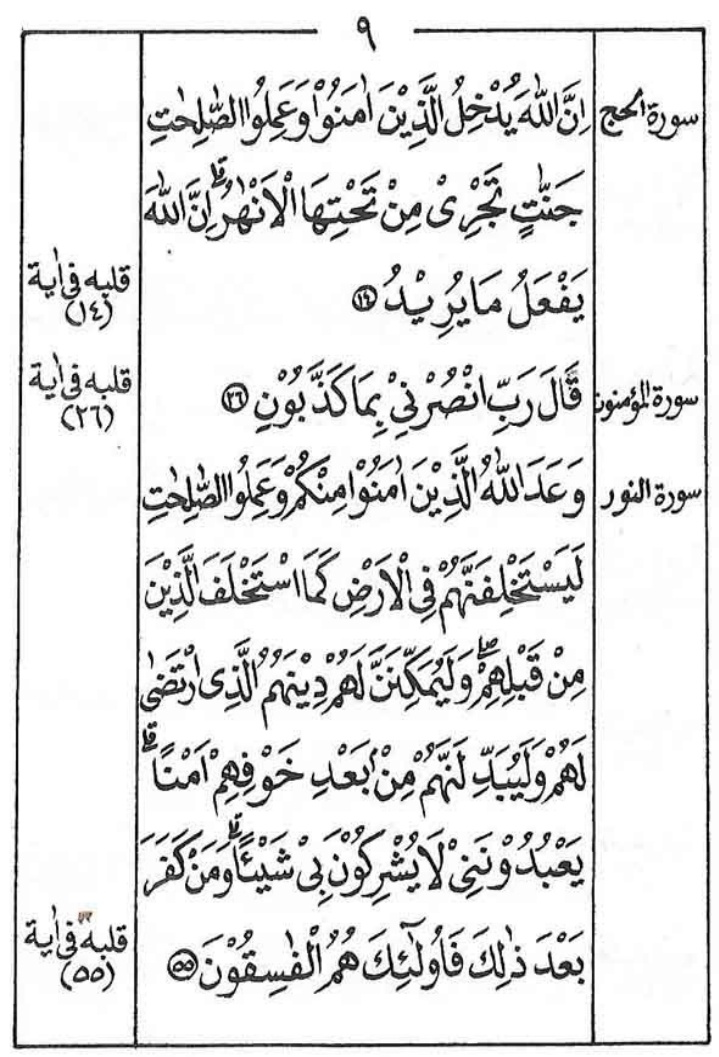 ٩
سورة الحج
اِنَّ اللّٰهَ يُدْخِلُ الَّذِيْنَ اٰمَنُوْا وَعَمِلُوا الصّٰلِحٰتِ
جَنّٰتٍ تَجْرِىْ مِنْ تَحْتِهَا الْاَنْهٰرُ ۗ اِنَّ اللّٰهَ
يَفْعَلُ مَا يُرِيْدُ ١٤
قلبه فى اٰية
(١٤)
سورة المؤمنون
قَالَ رَبِّ انْصُرْنِىْ بِمَا كَذَّبُوْنِ ٢٦
قلبه فى اٰية
(٢٦)
سورة النور
وَعَدَ اللّٰهُ الَّذِيْنَ اٰمَنُوْا مِنْكُمْ وَعَمِلُوا الصّٰلِحٰتِ
لَيَسْتَخْلِفَنَّهُمْ فِى الْاَرْضِ كَمَا اسْتَخْلَفَ الَّذِيْنَ
مِنْ قَبْلِهِمْ ۖ وَلَيُمَكِّنَنَّ لَهُمْ دِيْنَهُمُ الَّذِى ارْتَضٰى
لَهُمْ وَلَيُبَدِّلَنَّهُمْ مِنْۢ بَعْدِ خَوْفِهِمْ اَمْنًا ۗ
يَعْبُدُوْنَنِىْ لَا يُشْرِكُوْنَ بِىْ شَيْئًا ۗ وَمَنْ كَفَرَ
بَعْدَ ذٰلِكَ فَاُولٰٓئِكَ هُمُ الْفٰسِقُوْنَ ٥٥
قلبه فى اٰية
(٥٥)